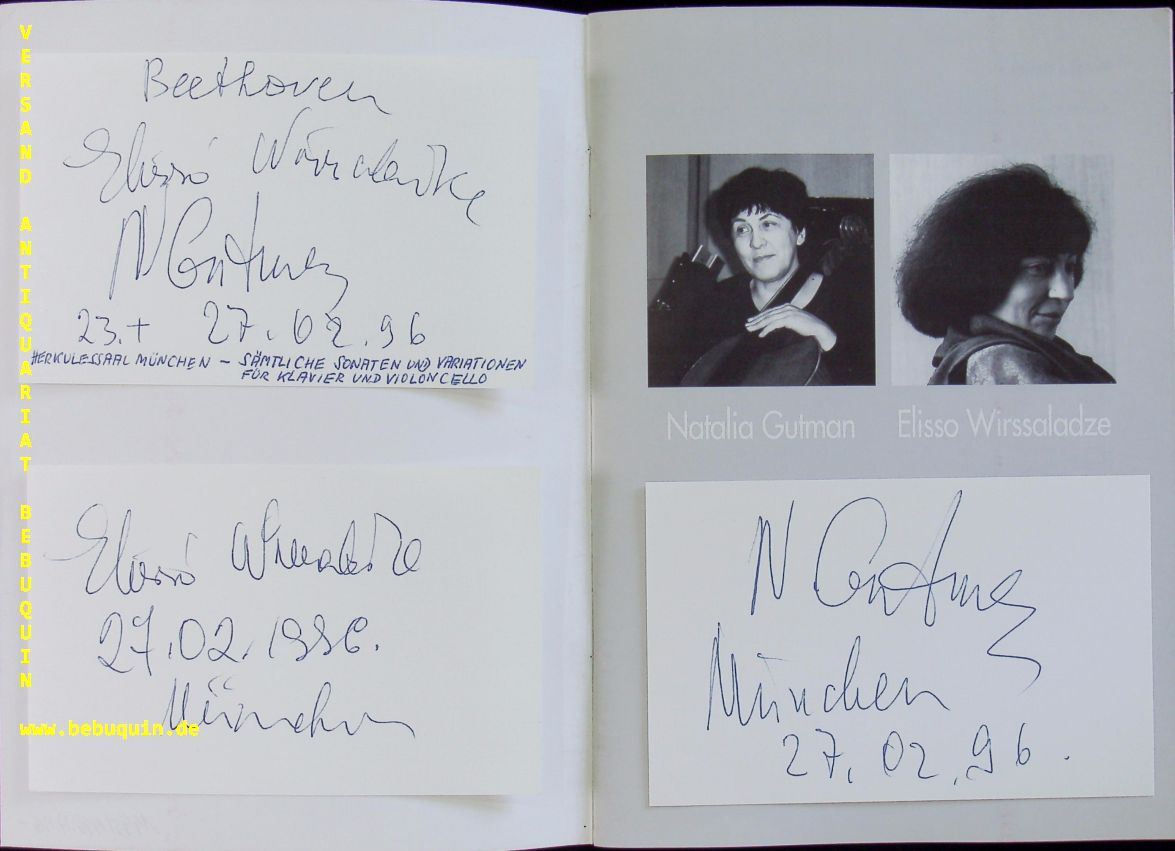 VERSAND ANTIQUARIAT BEBUQUIN
www.bebuquin.de
Beethoven
Elisso Wirssaladze
N Gutman
23.+ 27.02.96
HERKULESSAAL MÜNCHEN – SÄMTLICHE SONATEN UND VARIATIONEN
FÜR KLAVIER UND VIOLONCELLO
Elisso Wirssaladze
27.02.1996.
München
Natalia Gutman
Elisso Wirssaladze
N Gutman
München
27.02.96.